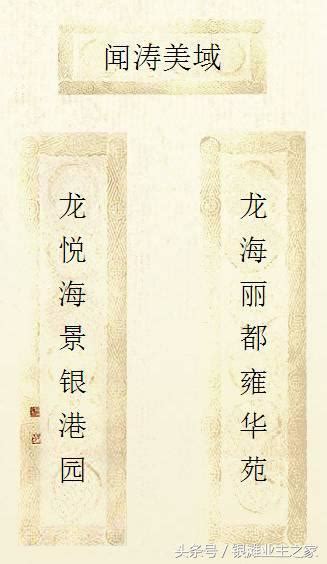 闻涛美域
龙海丽都雍华苑
龙悦海景银港园
头条号/银滩业主之家